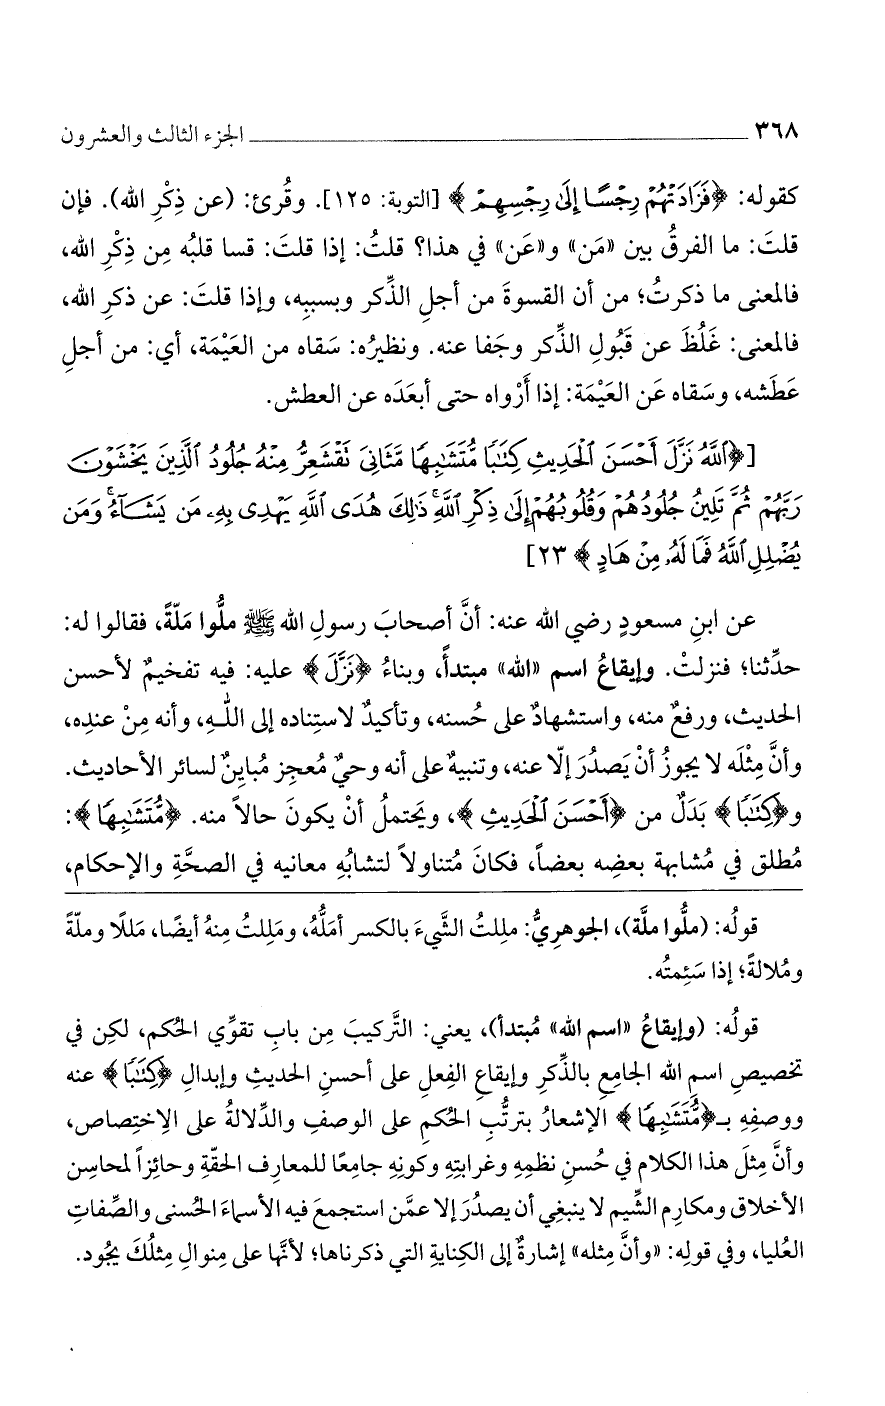 ٣٦٨ الجزء الثالث والعشرون
كقوله: ﴿فَزَادَتْهُمْ رِجْسًا إِلَىٰ رِجْسِهِمْ﴾ [التوبة: ١٢٥]. وقُرئ: (عن ذِكْرِ الله). فإن
قلتَ: ما الفرقُ بين «مَن» و«عَن» في هذا؟ قلتُ: إذا قلتَ: قسا قلبُه مِن ذِكْرِ الله،
فالمعنى ما ذكرتُ؛ من أن القسوةَ من أجلِ الذِّكر وبسببِه، وإذا قلتَ: عن ذكرِ الله،
فالمعنى: غَلُظَ عن قَبُولِ الذِّكر وجَفا عنه. ونظيرُه: سَقاه من العَيْمَة، أي: من أجلِ
عَطَشه، وسَقاه عَن العَيْمَة: إذا أَرْواه حتى أبعَدَه عن العطش.
[﴿ٱللَّهُ نَزَّلَ أَحْسَنَ ٱلْحَدِيثِ كِتَٰبًا مُّتَشَٰبِهًا مَّثَانِىَ تَقْشَعِرُّ مِنْهُ جُلُودُ ٱلَّذِينَ يَخْشَوْنَ
رَبَّهُمْ ثُمَّ تَلِينُ جُلُودُهُمْ وَقُلُوبُهُمْ إِلَىٰ ذِكْرِ ٱللَّهِ ۚ ذَٰلِكَ هُدَى ٱللَّهِ يَهْدِى بِهِۦ مَن يَشَآءُ ۚ وَمَن
يُضْلِلِ ٱللَّهُ فَمَا لَهُۥ مِنْ هَادٍ﴾ ٢٣]
عن ابنِ مسعودٍ رضي الله عنه: أنَّ أصحابَ رسولِ الله ﷺ ملُّوا مَلّةً، فقالوا له:
حدِّثنا؛ فنزلتْ. وإيقاعُ اسم «الله» مبتدأً، وبناءُ ﴿نَزَّلَ﴾ عليه: فيه تفخيمٌ لأحسن
الحديث، ورفعٌ منه، واستشهادٌ على حُسنه، وتأكيدٌ لاستِناده إلى اللهِ، وأنه مِنْ عنده،
وأنَّ مِثْلَه لا يجوزُ أنْ يَصدُرَ إلّا عنه، وتنبيهٌ على أنه وحيٌ مُعجِز مُباينٌ لسائر الأحاديث.
و﴿كِتَٰبًا﴾ بَدَلٌ من ﴿أَحْسَنَ ٱلْحَدِيثِ﴾، ويَحتملُ أنْ يكونَ حالاً منه. ﴿مُّتَشَٰبِهًا﴾:
مُطلق في مُشابهة بعضِه بعضاً، فكانَ مُتناولاً لتشابُهِ معانيه في الصحَّةِ والإحكام،
قولُه: (ملُّوا ملَّة)، الجوهريُّ: مللِتُ الشَّيءَ بالكسر أمَلُّهُ، ومَلِلتُ مِنهُ أيضًا، مَللًا وملّةً
ومُلالةً؛ إذا سَئِمتُه.
قولُه: (وإيقاعُ «اسم الله» مُبتدأ)، يعني: التَّركيبَ مِن بابِ تقوِّي الحُكم، لكِن في
تخصيصِ اسمِ الله الجامِعِ بالذِّكرِ وإيقاعِ الفِعلِ على أحسنِ الحديثِ وإبدالِ ﴿كِتَٰبًا﴾ عنه
ووصفِهِ بـ﴿مُّتَشَٰبِهًا﴾ الإشعارُ بترتُّبِ الحُكمِ على الوصفِ والدِّلالةُ على الاِختِصاص،
وأنَّ مِثلَ هذا الكلام في حُسنِ نظمِهِ وغرابتِهِ وكونِهِ جامِعًا للمعارِف الحقّةِ وحائِزاً لمحاسِن
الأخلاق ومكارِم الشِّيم لا ينبغِي أن يصدُرَ إلا عمَّن استجمعَ فيه الأسماءَ الحُسنى والصِّفاتِ
العُليا، وفي قولِه: «وأنَّ مثله» إشارةٌ إلى الكِنايةِ التي ذكرناها؛ لأنَّها على مِنوالِ مِثلُكَ يجُود.